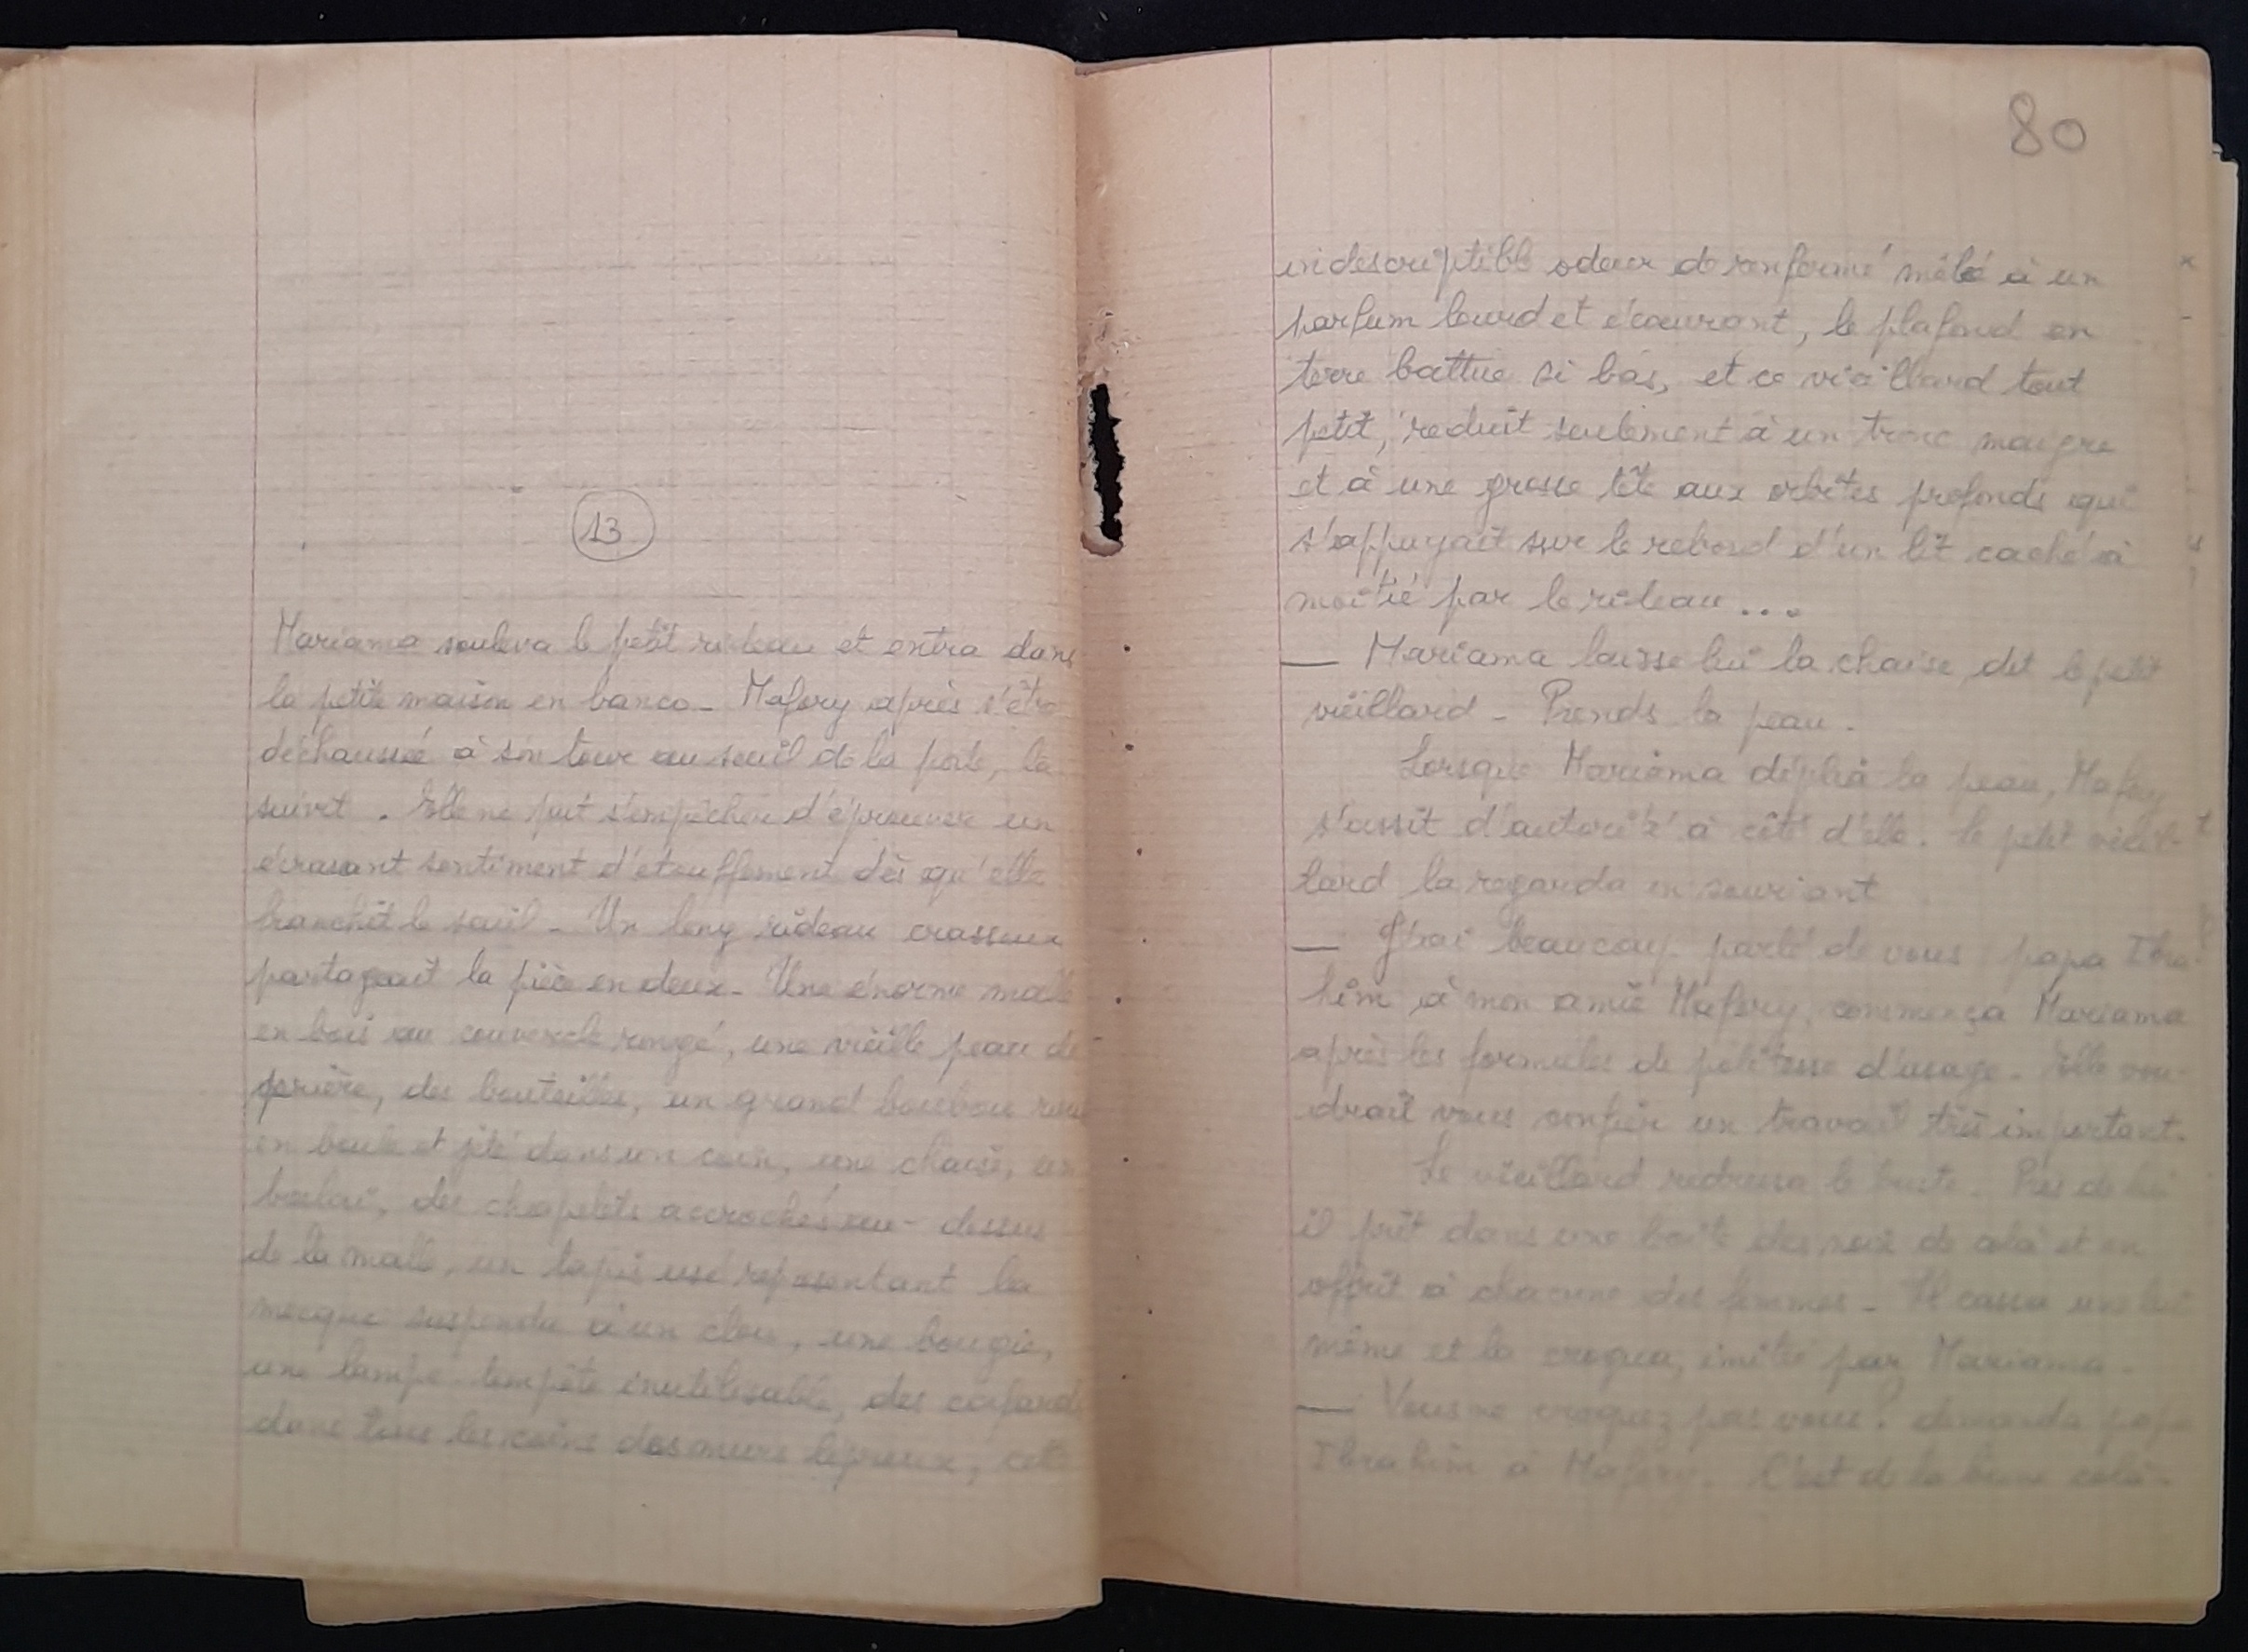 13
Mariama souleva le petit rideau et entra dans
la petite maison en banco - Mafory après s'être
déchaussée à son tour au seuil de la porte, la
suivit. Elle ne put s'empêcher d'éprouver un
écrasant sentiment d'etouffement dès qu'elle
franchit le seuil - Un long rideau crasseux
partageait la pièce en deux - Une énorme malle
en bois au couvercle rongé, une vieille peau de
prière, des bouteilles, un grand boubou
en boule et jeté dans un coin, une chaise, un
balai, des chapelets accrochés au-dessus
de la malle, un tapis usé représentant la
mecque suspendu à un clou, une bougie,
une lampe-tempête inutilisable, des cafards
dans tous les coins des murs lépreux, cette
80
indescriptible odeur de renfermé mêlé à un
parfum lourd et écœurant, le plafond en
terre battue si bas, et ce vieillard tout
petit, réduit seulement à un tronc maigre
et à une grosse tête aux orbites profonds qui
s'appuyait sur le rebord d'un lit caché à
moitié par le rideau...
— Mariama laisse lui la chaise, dit le petit
vieillard - Prends la peau.
Lorsque Mariama déplia la peau, Mafory
s'assit d'autorité à côté d'elle. Le petit vieil-
lard la regarda en souriant
— J'ai beaucoup parlé de vous papa Ibra-
him à mon amie Mafory, commença Mariama
après les formules de politesse d'usage - Elle vou-
drait vous confier un travail très important.
Le vieillard redressa le buste. Près de lui
il prit dans une boîte des noix de cola et en
offrit à chacune des femmes - Il cassa une lui
même et la croqua, imité par Mariama -
— Vous ne croquez pas vous? demanda papa
Ibrahim à Mafory. C'est de la bonne cola -